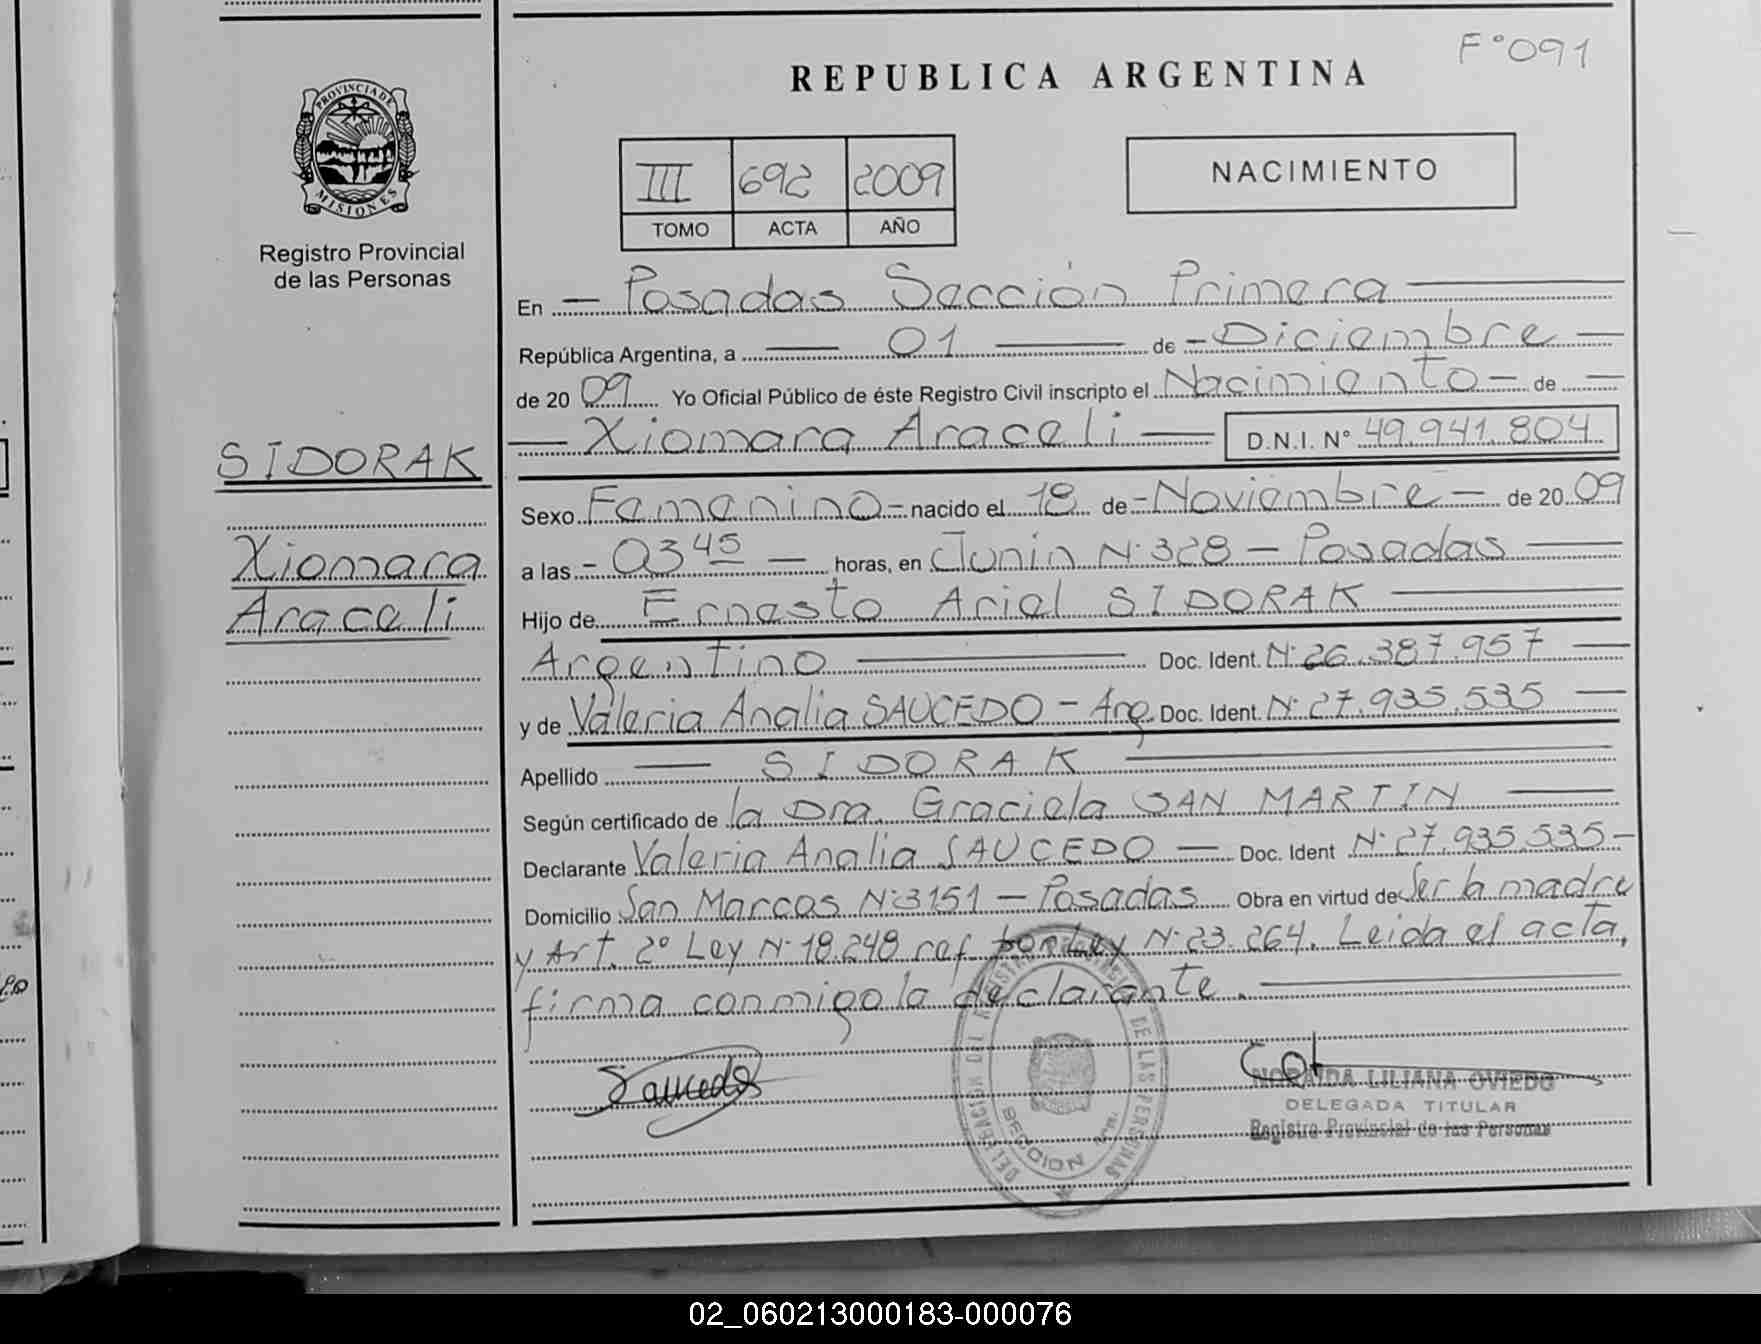 F° 091
REPUBLICA ARGENTINA
PROVINCIA DE
MISIONES
Registro Provincial
de las Personas
III 692 2009
TOMO ACTA AÑO
NACIMIENTO
En — Posadas Sección Primera —
República Argentina, a — 01 — de — Diciembre —
de 20 09 Yo Oficial Público de éste Registro Civil inscripto el Nacimiento — de —
— Xiomara Araceli — D.N.I. N° 49.941.804
SIDORAK
Xiomara
Araceli
Sexo Femenino — nacido el 18 de — Noviembre — de 20 09
a las — 03 45 — horas, en Junín N° 328 — Posadas —
Hijo de Ernesto Ariel SIDORAK —
Argentino — Doc. Ident. N° 26.387.957 —
y de Valeria Analia SAUCEDO — Arg. Doc. Ident. N° 27.935.535 —
Apellido — SIDORAK —
Según certificado de la Dra. Graciela SAN MARTIN —
Declarante Valeria Analia SAUCEDO — Doc. Ident N° 27.935.535 —
Domicilio San Marcos N° 3151 — Posadas Obra en virtud de Ser la madre
y Art. 2° Ley N° 18.248 ref. por Ley N° 23.264. Leida el acta,
firma conmigo la declarante. —
Saucedo
NORAIDA LILIANA OVIEDO
DELEGADA TITULAR
Registro Provincial de las Personas
DELEGACION DEL REGISTRO PROVINCIAL DE LAS PERSONAS
SECCION 1ra.
02_060213000183-000076